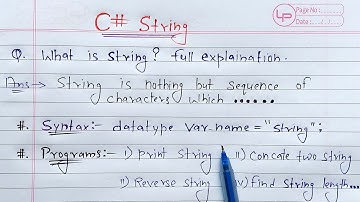 C# String
LP
Page No:
Date: / /
Q. What is String? full explaination.
Ans→ String is nothing but sequence of
characters which ......
#. Syntax:- datatype var-name = "String";
#. Programs:- i) print string ii) Concate two string
ii) Reverse string iv) find string length...